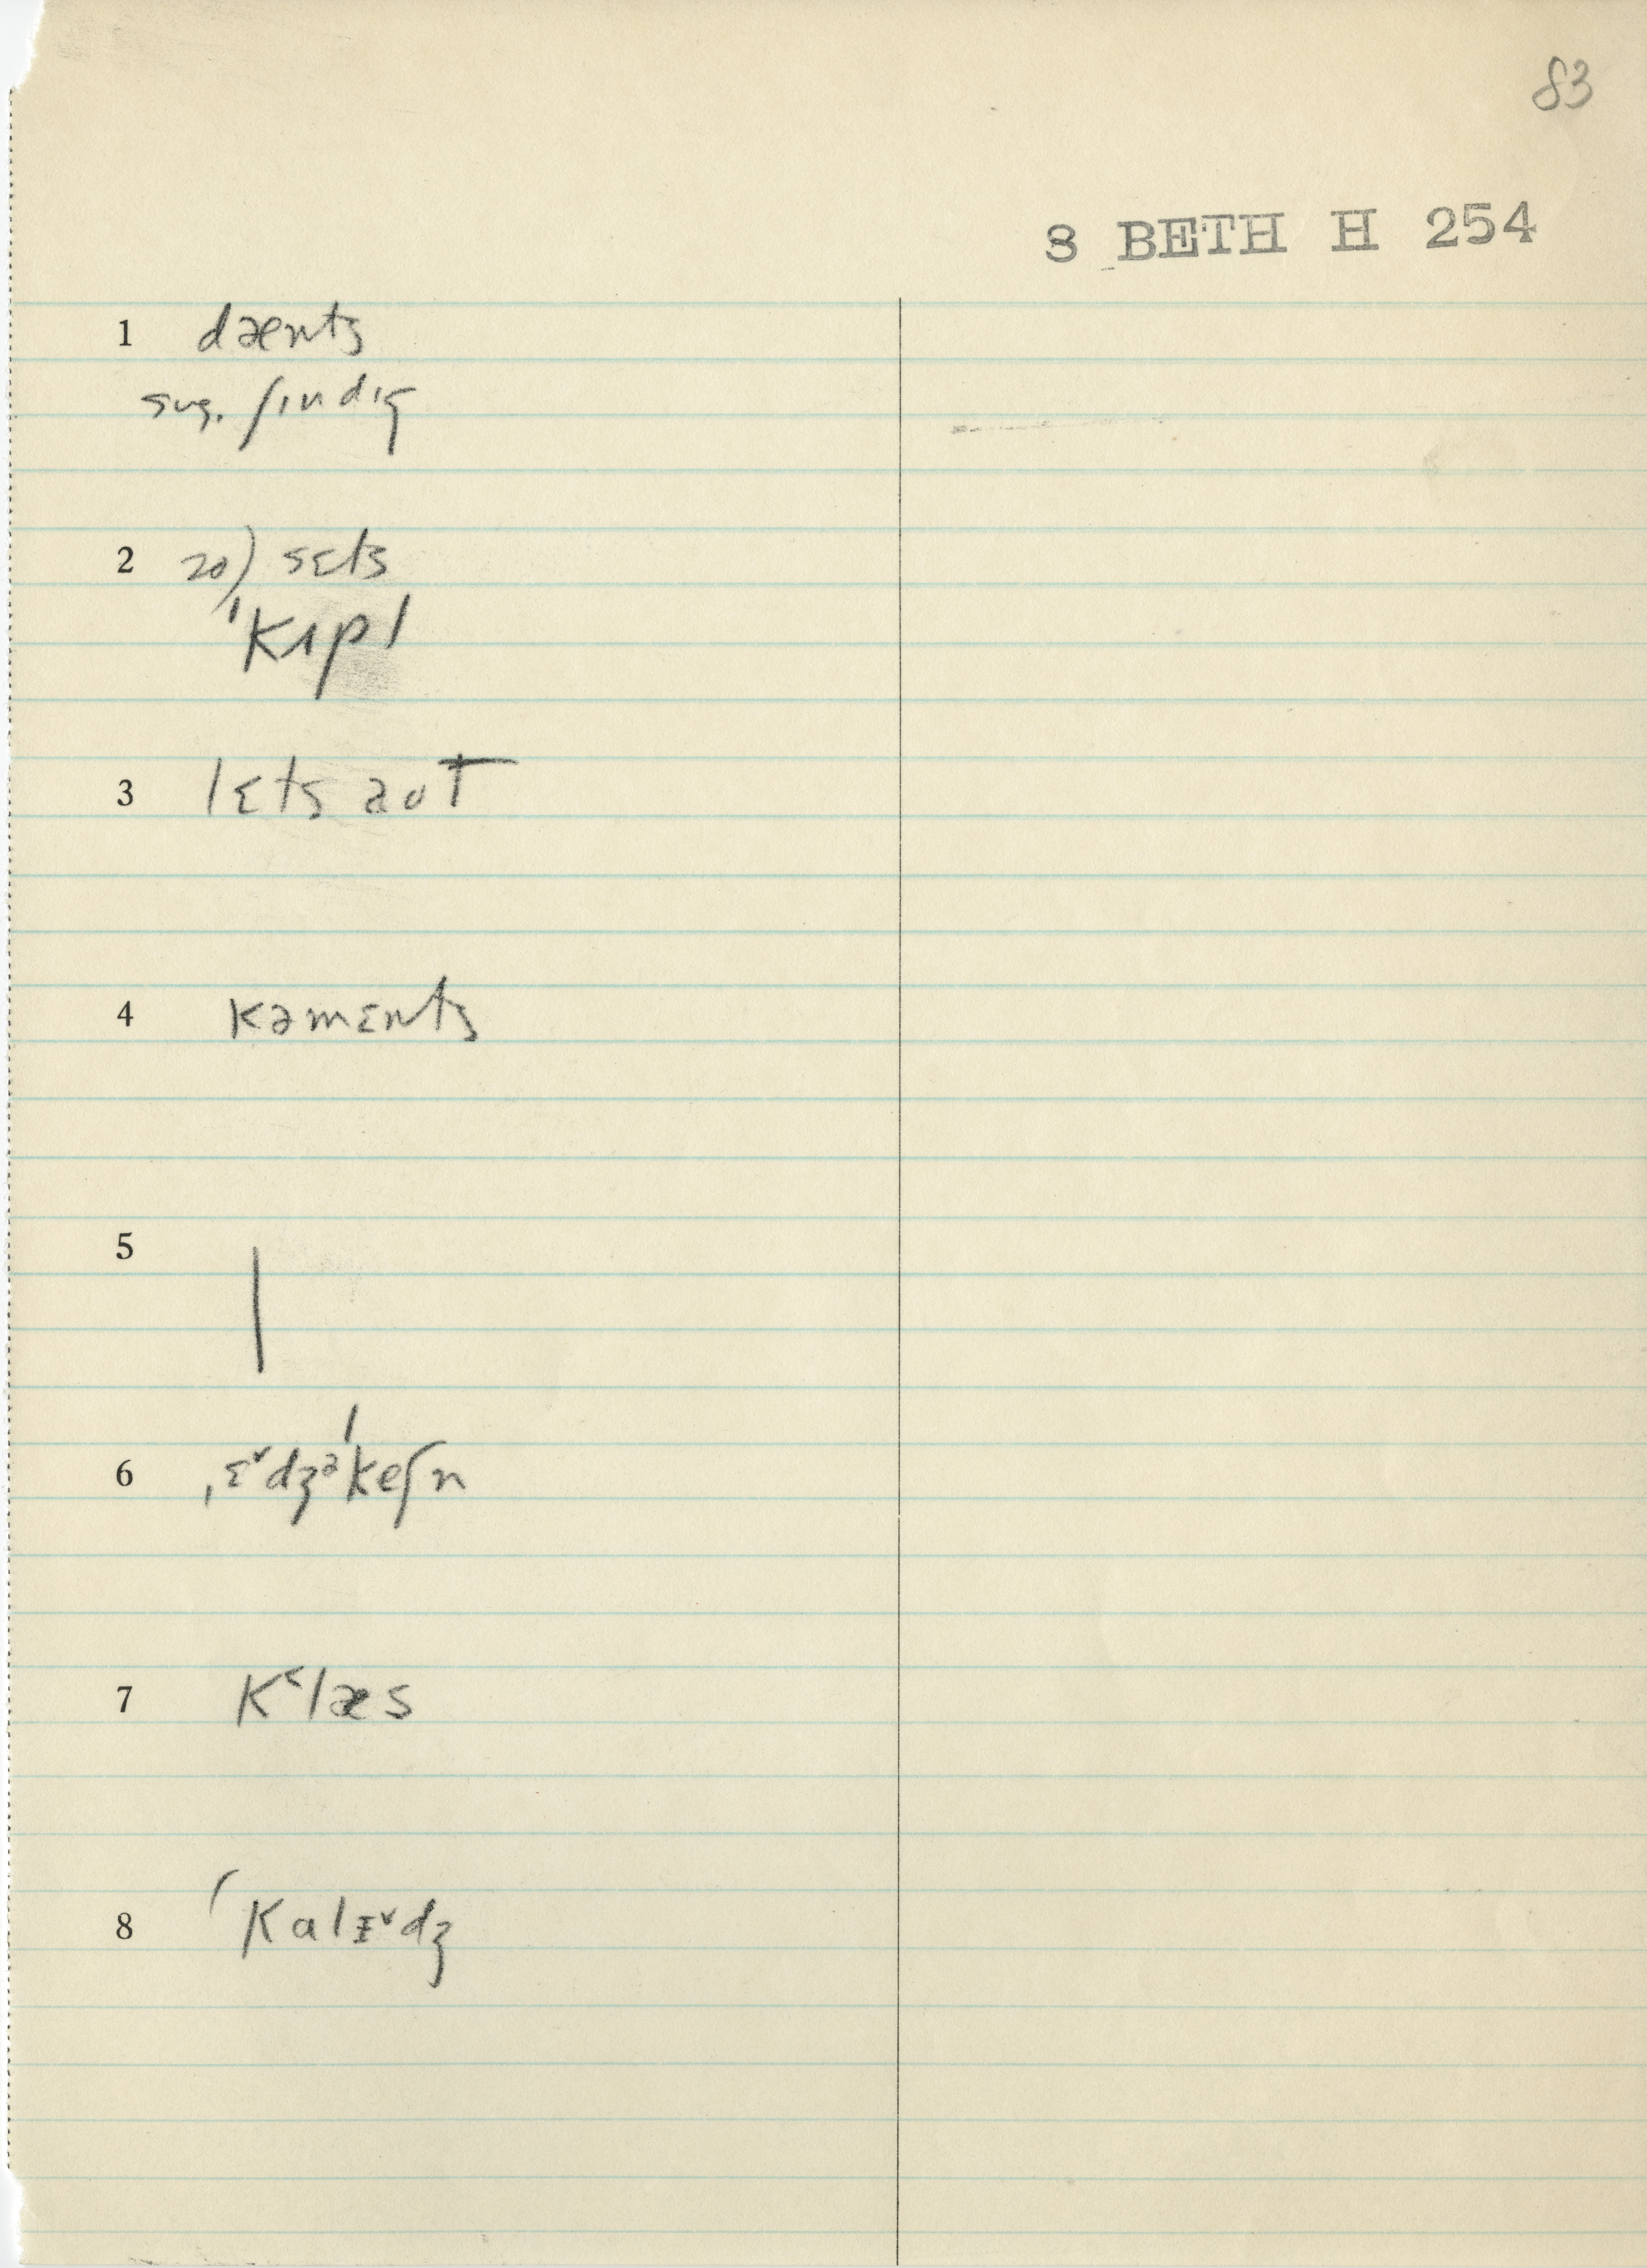 83
8 BETH H 254
1 dænts
sug. ʃındıg
2 20) sɛts
ˈkɪpl
3 lɛts aut
4 kəmɛnts
5 |
6 ˌɛ˅dʒəˈkeʃn
7 K˂læs
8 ˈkalɪ˅dʒ